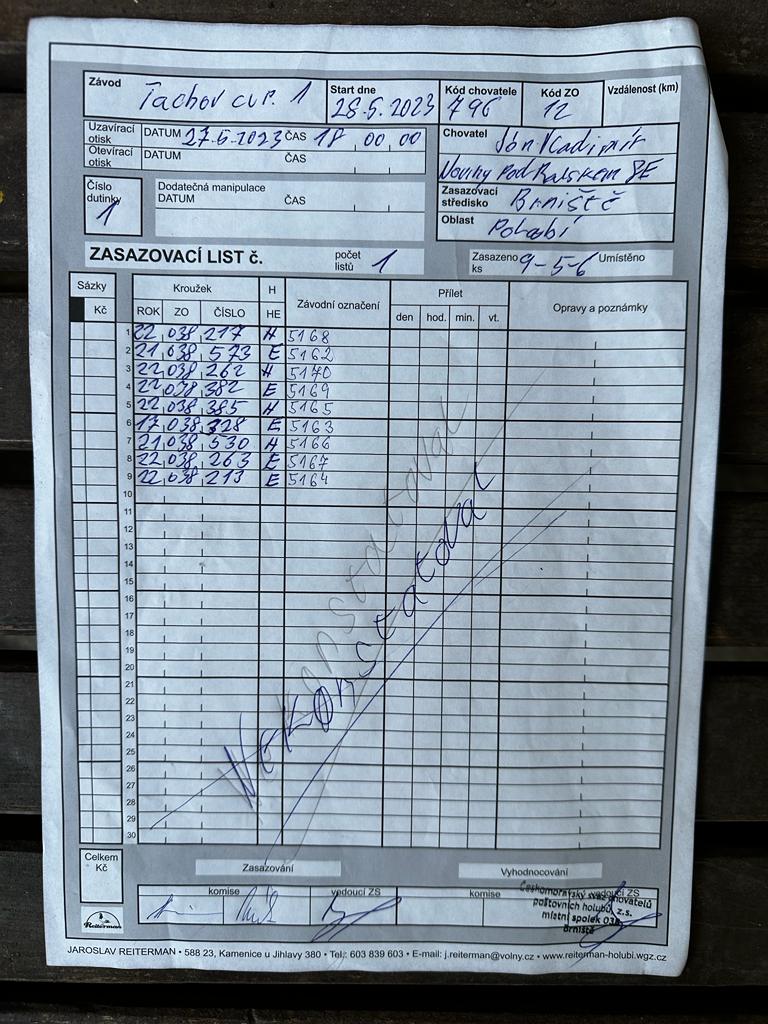 Závod Start dne Kód chovatele Kód ZO Vzdálenost (km)
Tachov cup. 1 28.5.2023 796 12
Uzavírací otisk DATUM 27.5.2023 ČAS 18 00 00
Otevírací otisk DATUM ČAS
Chovatel Ján Vladimír
Noviny Pod Ralskem 8E
Číslo dutinky 1
Dodatečná manipulace
DATUM ČAS
Zasazovací středisko Brniště
Oblast
ZASAZOVACÍ LIST č. počet listů 1 Zasazeno ks 9-5-6 Umístěno
Sázky Kroužek H Závodní označení Přílet Opravy a poznámky
Kč ROK ZO ČÍSLO HE den hod. min. vt.
1 22 038 217 H 5168
2 21 038 573 E 5162
3 22 038 262 H 5170
4 22 038 382 E 5169
5 22 038 385 H 5165
6 17 038 328 E 5163
7 21 038 530 H 5166
8 22 038 263 E 5167
9 22 038 213 E 5164
10
11
12
13
14
15
16
17
18
19
20
21
22
23
24
25
26
27
28
29
30
Nekonstatoval
Celkem Kč
Zasazování Vyhodnocování
komise vedoucí ZS komise vedoucí ZS
Českomoravský svaz chovatelů
poštovních holubů, z.s.
místní spolek 038
Brniště
Reiterman
JAROSLAV REITERMAN • 588 23, Kamenice u Jihlavy 380 • Tel.: 603 839 603 • E-mail: j.reiterman@volny.cz • www.reiterman-holubi.wgz.cz